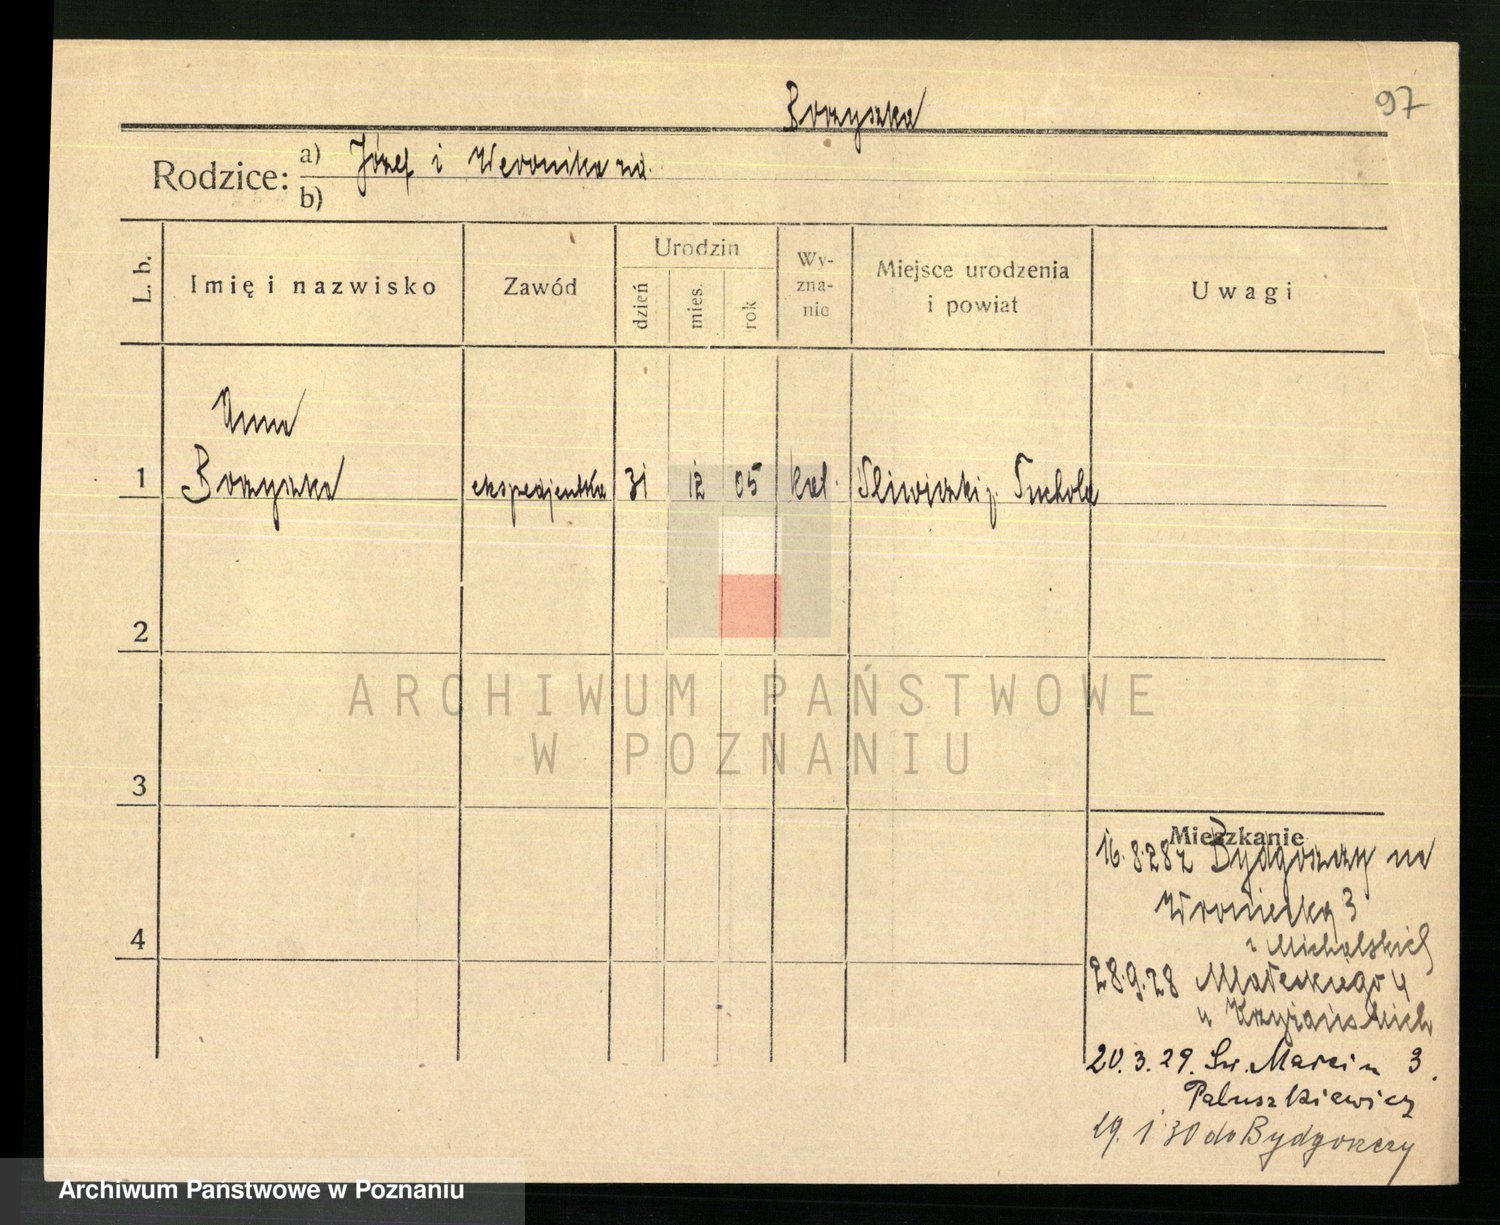 97
Borzyszka
Rodzice: a) Józef i Weronika zd.
b)
L. b.
Imię i nazwisko
Zawód
Urodzin
dzień
mies.
rok
Wy-
zna-
nie
Miejsce urodzenia
i powiat
Uwagi
Anna
1 Borzyszka ekspedjentka 31 12 05 kat. Śliwiczki p. Tuchola
2
3
4
ARCHIWUM PAŃSTWOWE
W POZNANIU
Mieszkanie
16.8.28 z Bydgoszczy na
Wroniecką 3
u Michalskich
28.9.28 Małeckiego 4
u Krzyżańskich
20.3.29. Św. Marcin 3.
Paluszkiewicz
29.1.30 do Bydgoszczy
Archiwum Państwowe w Poznaniu